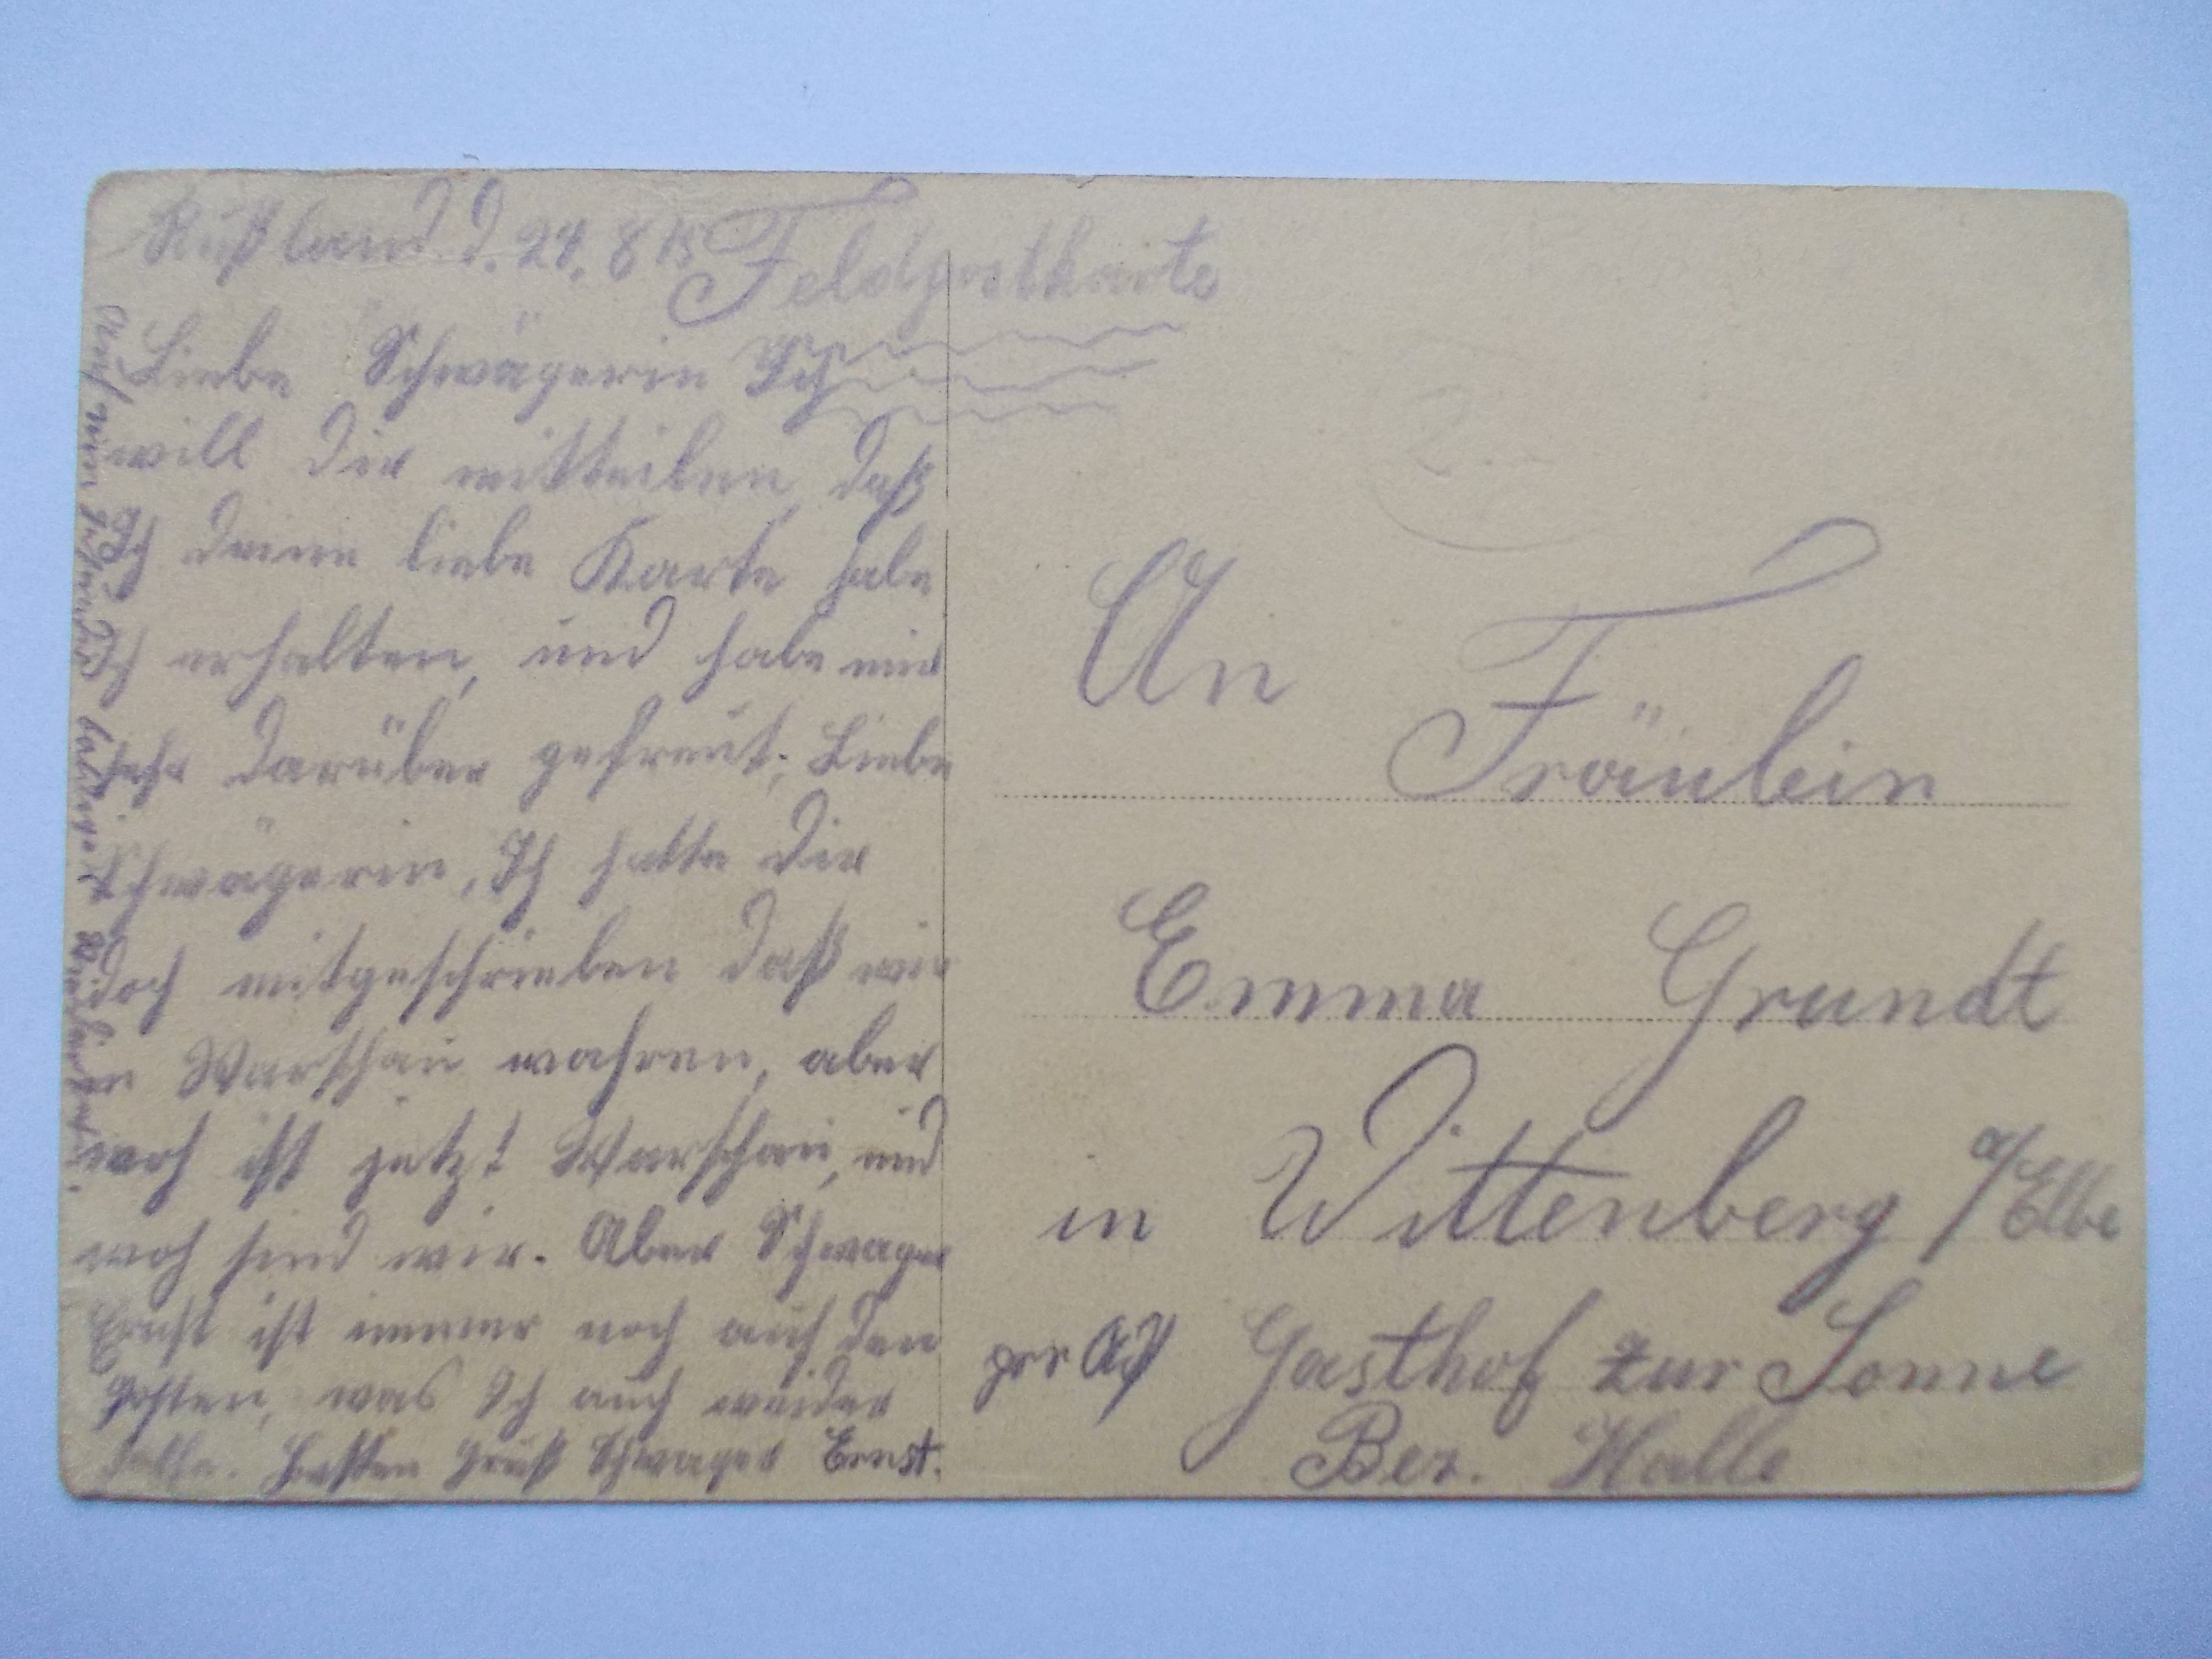 Rußland d. 24. 8 15
Feldpostkarte
Liebe Schwägerin Ich
will dir mitteilen, daß
Ich deine liebe Karte habe
erhalten, und habe mir
sehr darüber gefreut. Liebe
Schwägerin, Ich hatte dir
doch mitgeschrieben daß wir
in Warschau wahren, aber
woh ist jetzt Warschau, und
woh sind wir. Aber Schwager
Ernst ist immer noch auf den
Posten, was Ich auch weider
hoffe. Besten Gruß Schwager Ernst.
Auf ein gesundes baldiges Wiedersehen.
An
Fräulein
Emma Grundt
in Wittenberg a/Elbe
per Gasthof zur Sonne
Bez. Halle